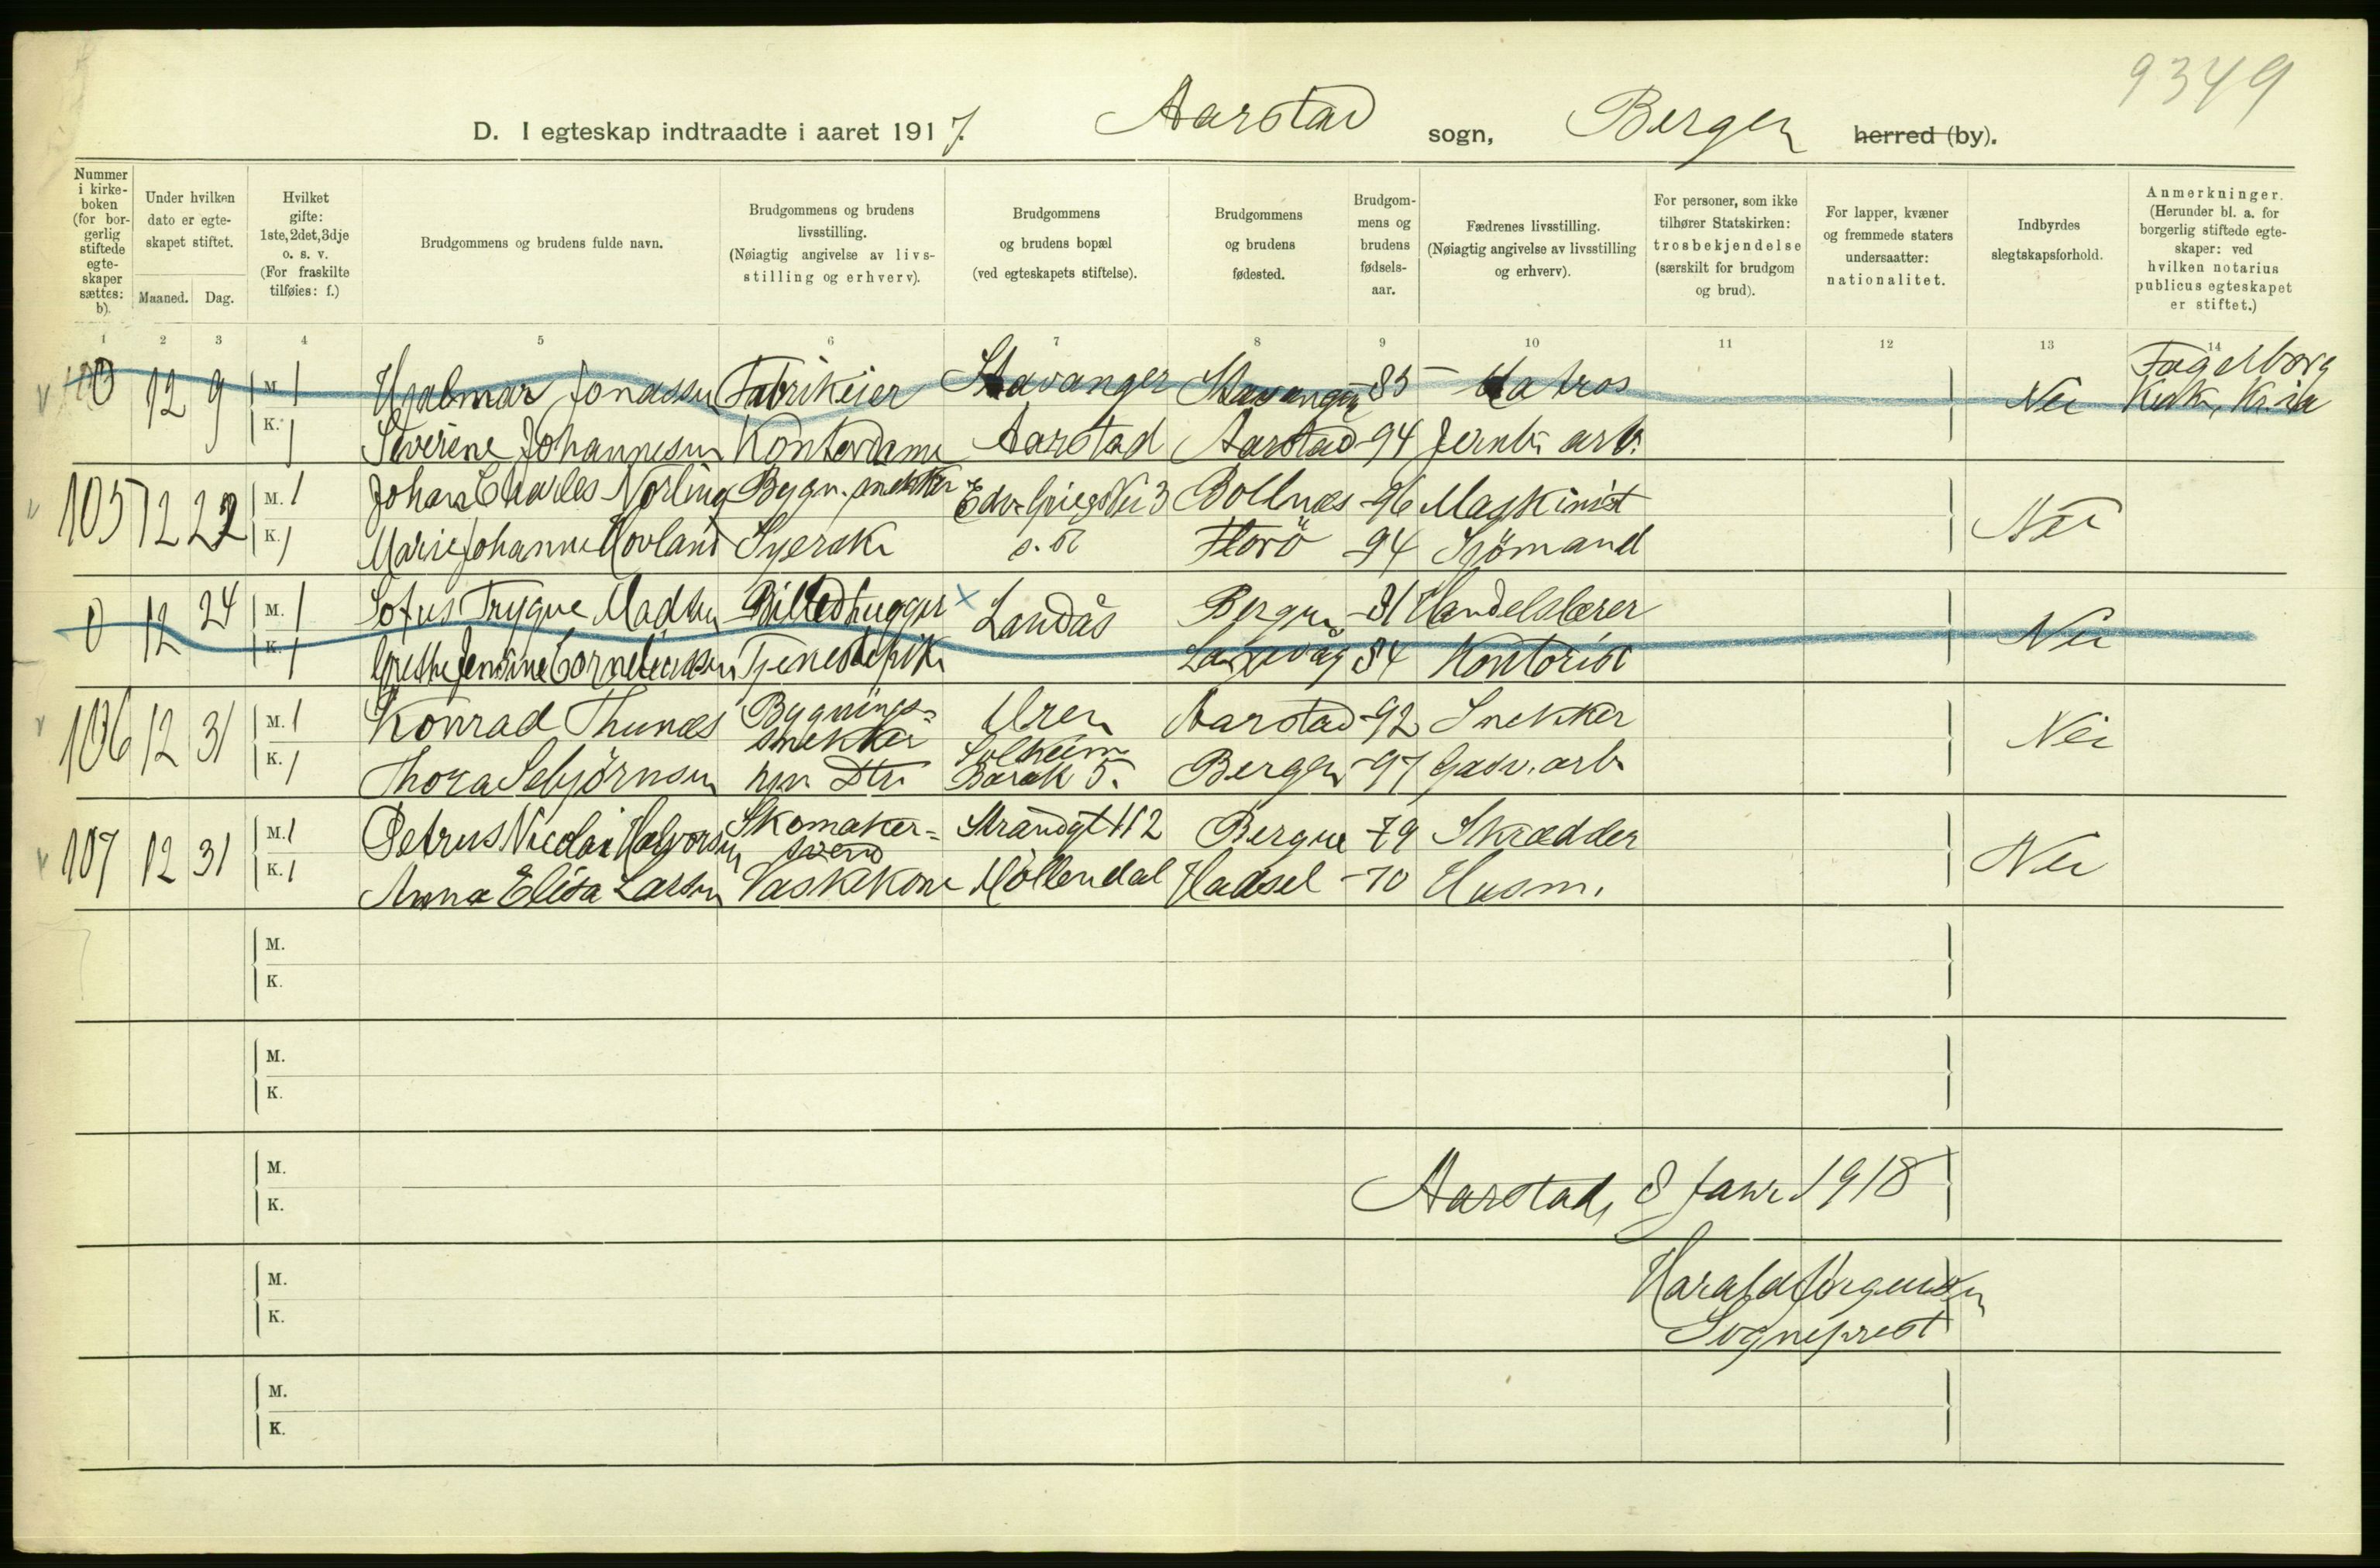 9349
D. I egteskap indtraadte i aaret 1917. Aarstad sogn, Bergen herred (by).
Nummer i kirke-boken (for bor-gerlig stiftede egte-skaper sættes: b).
Under hvilken dato er egte-skapet stiftet.
Maaned. Dag.
Hvilket gifte: 1ste, 2det, 3dje o. s. v. (For fraskilte tilføies: f.)
Brudgommens og brudens fulde navn.
Brudgommens og brudens livsstilling. (Nøiagtig angivelse av livs-stilling og erhverv).
Brudgommens og brudens bopæl (ved egteskapets stiftelse).
Brudgommens og brudens fødested.
Brudgom-mens og brudens fødsels-aar.
Fædrenes livsstilling. (Nøiagtig angivelse av livsstilling og erhverv).
For personer, som ikke tilhører Statskirken: trosbekjendelse (særskilt for brudgom og brud).
For lapper, kvæner og fremmede staters undersaatter: nationalitet.
Indbyrdes slegtskapsforhold.
Anmerkninger. (Herunder bl. a. for borgerlig stiftede egte-skaper: ved hvilken notarius publicus egteskapet er stiftet.)
1 2 3 4 5 6 7 8 9 10 11 12 13 14
0 12 9 M. 1 Hjalmar Jonassen Fabrikeier Stavanger Stavanger -85 Matros Nei Fagerborg Kirk, Kr.ia
K. 1 Severine Johannesen Kontordame Aarstad Aarstad -94 Jernb. arb.
105 12 22 M. 1 Johan Charles Norling Bygn. snekker Edv. Griegs Vei 3 Bollnæs -96 Maskinist Nei
K. 1 Marie Johanne Hovland Syerske s. st Florö -94 Sjömand
0 12 24 M. 1 Sofus Trygve Madsen Billedhugger x Landås Bergen -81 Handelslærer Nei
K. 1 Grethe Jensine Corneliussen Tjenestepike Laxevåg 84 Kontorist
106 12 31 M. 1 Konrad Thunæs Bygnings-snekker Uren Aarstad -92 Snekker Nei
K. 1 Thora Sebjörnsen hjv. Dtr. Solheim Barak 5. Bergen -97 Gasv. arb.
107 12 31 M. 1 Petrus Nicolai Halvorsen Skomaker-svend Strandgt 112 Bergen -79 Skrædder Nei
K. 1 Anna Elisa Larsen Vaskekone Möllendal Hadsel -70 Husm.
M.
K.
M.
K.
M.
K.
Aarstad, 8 Janr. 1918
M.
K.
Harald Jörgensen
Sogneprest
M.
K.